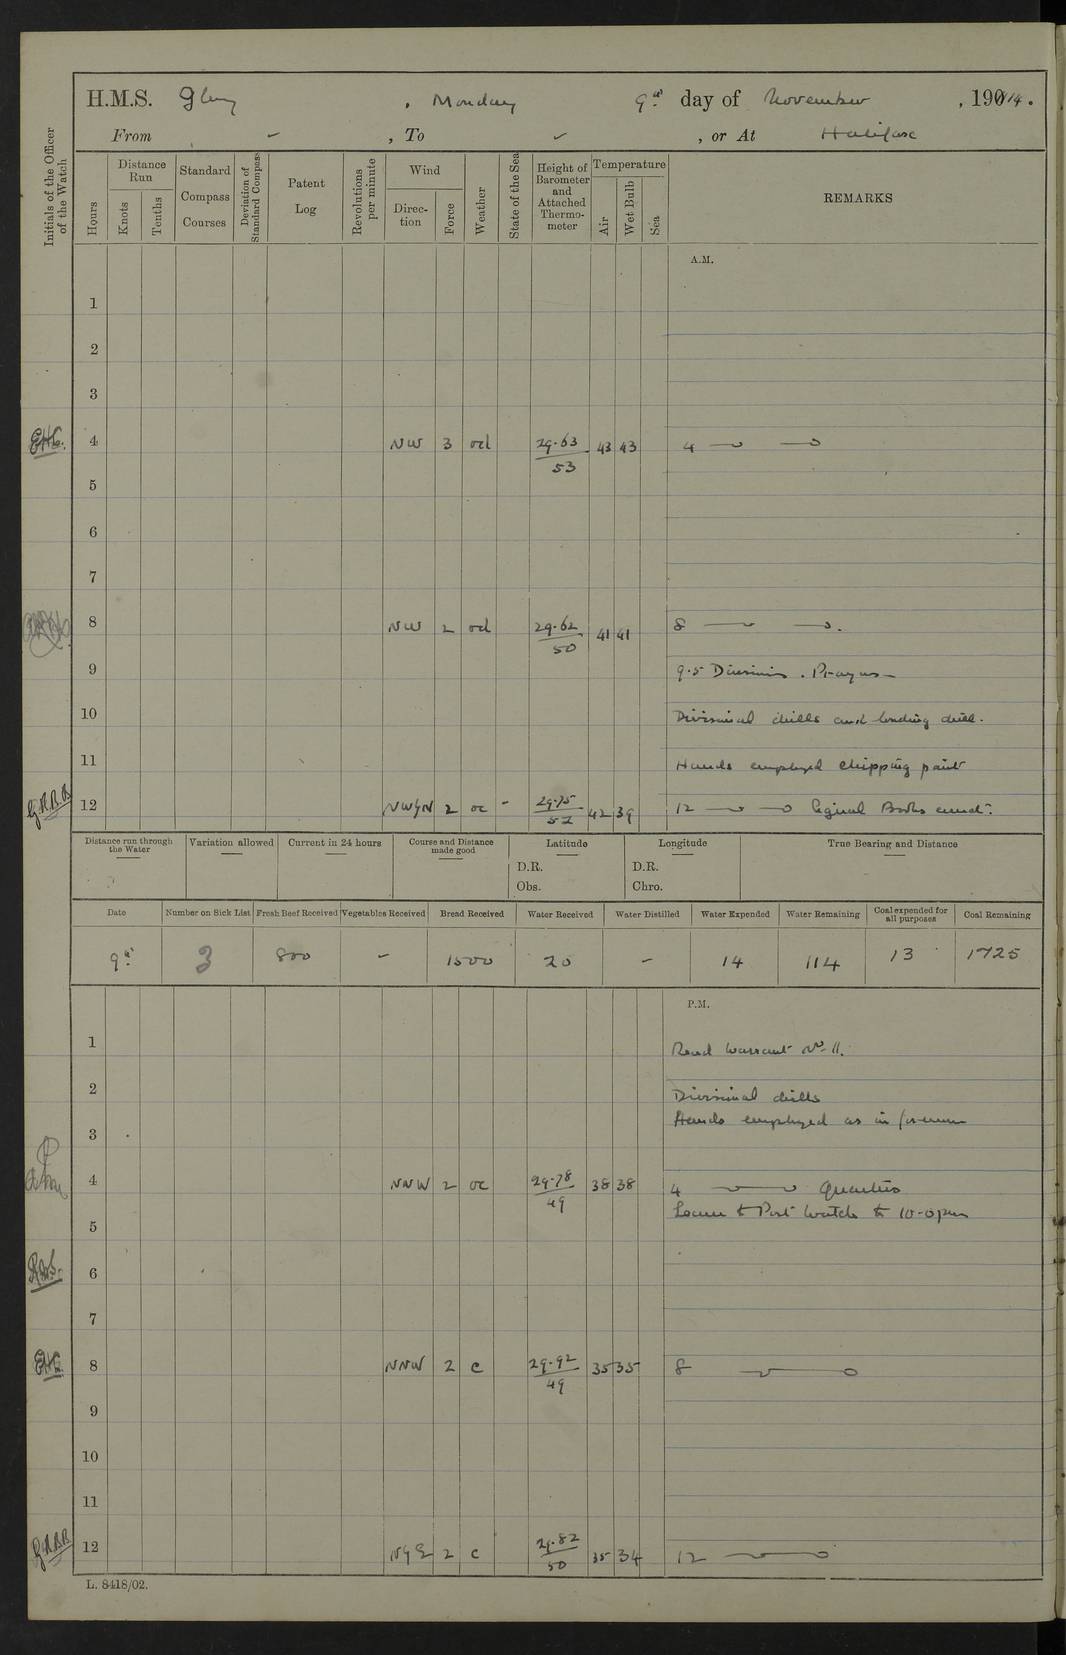 H.M.S. Glory , Monday 9th day of November , 1914.
From - , To - , or At Halifax
Initials of the Officer of the Watch
Hours
Distance Run
Knots
Tenths
Standard Compass Courses
Deviation of Standard Compass
Patent Log
Revolutions per minute
Wind
Direction
Force
Weather
State of the Sea
Height of Barometer and Attached Thermometer
Temperature
Air
Wet Bulb
Sea
REMARKS
A.M.
1
2
3
4 NW 3 od 29.63/53 43 43 4
5
6
7
8 NW 2 od 29.62/50 41 41 8
9 9.5 Divisions. Prayers
10 Divisional drills and landing drill.
11 Hands employed chipping paint
G.R.B.B. 12 NWyN 2 oc - 29.75/52 42 39 12 Signal Books musd.
Distance run through the Water
Variation allowed
Current in 24 hours
Course and Distance made good
Latitude
D.R.
Obs.
Longitude
D.R.
Chro.
True Bearing and Distance
Date Number on Sick List Fresh Beef Received Vegetables Received Bread Received Water Received Water Distilled Water Expended Water Remaining Coal expended for all purposes Coal Remaining
9th 3 800 - 1500 20 - 14 114 13 1725
P.M.
1 Read Warrant No 11.
2 Divisional drills
Hands employed as in forenoon
3
4 NNW 2 oc 29.78/49 38 38 4 Quarters
Leave to Port Watch to 10-0 pm
5
6
7
8 NNW 2 c 29.92/49 35 35 8
9
10
11
G.R.B.B. 12 NyE 2 c 29.82/50 35 34 12
L. 8418/02.